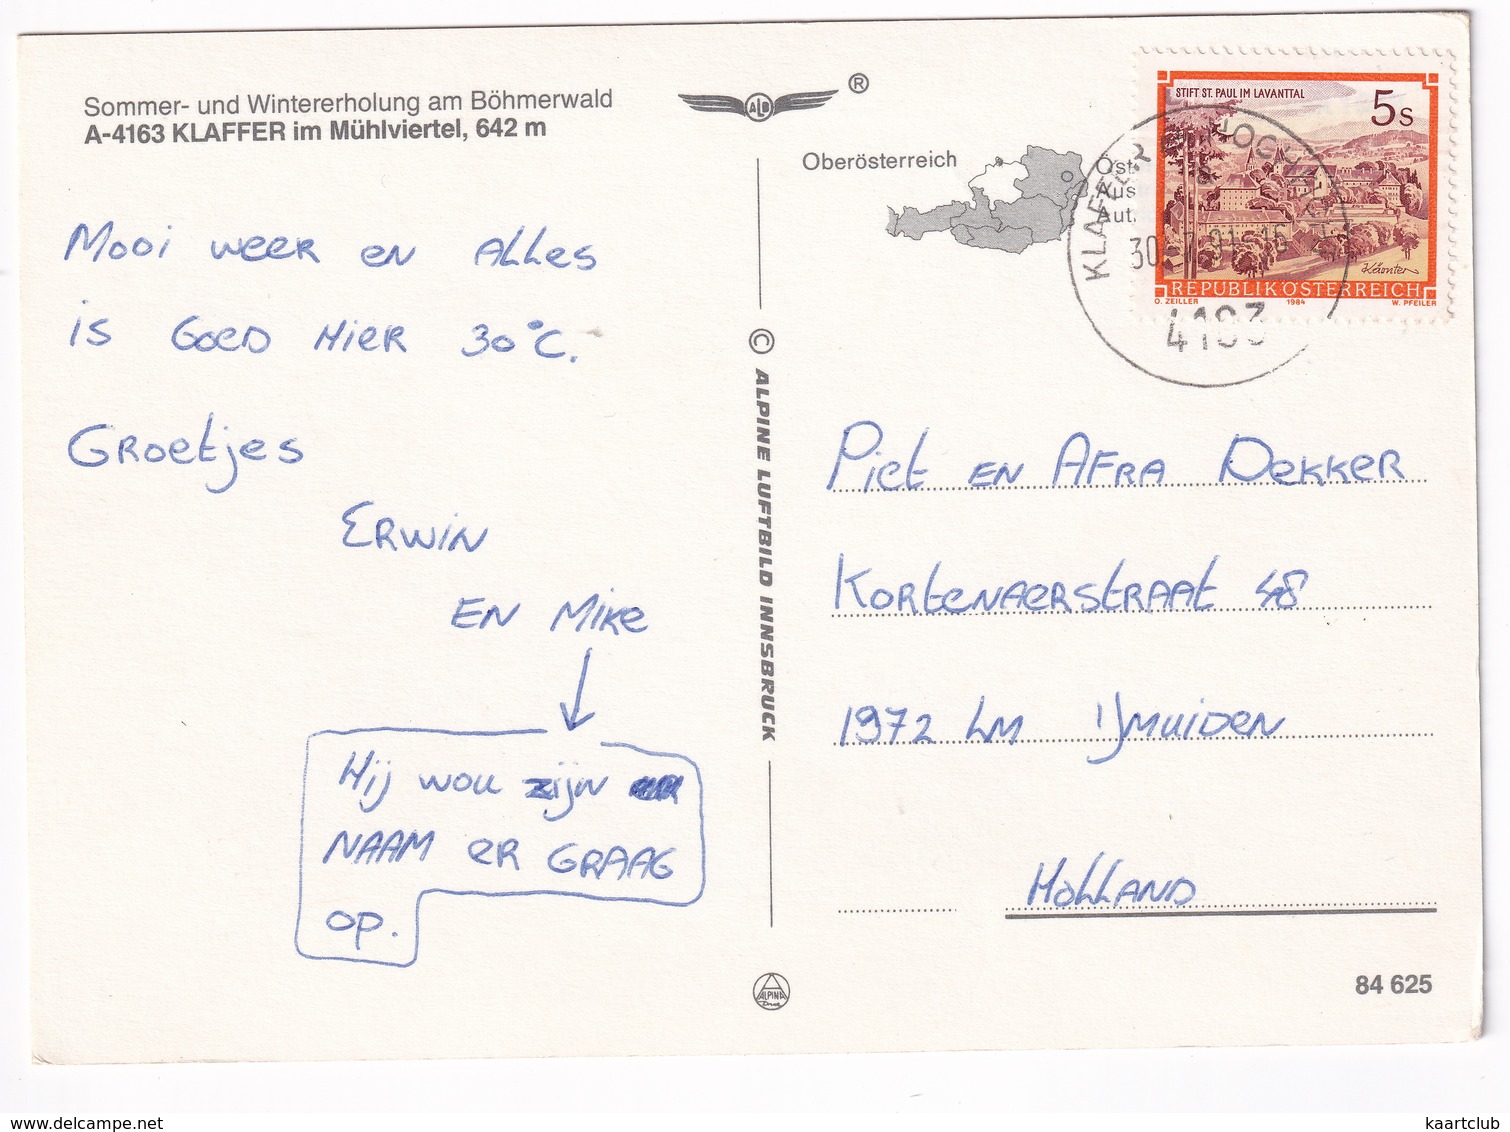 Sommer- und Wintererholung am Böhmerwald
A-4163 KLAFFER im Mühlviertel, 642 m
Mooi weer en Alles
is Goed Hier 30°C.
Groetjes
Erwin
en Mike
Hij wou zijn
naam er graag
op.
© ALPINE LUFTBILD INNSBRUCK
ALPINA
Druck
ALB
®
Oberösterreich
Öst
Aus
Aut.
STIFT ST. PAUL IM LAVANTTAL
5s
Kärnten
REPUBLIK ÖSTERREICH
O. ZEILLER 1984 W. PFEILER
KLAFFER
4163
Piet en Afra Dekker
Kortenaerstraat 48
1972 LM IJmuiden
Holland
84 625
kaartclub
delcampe.net